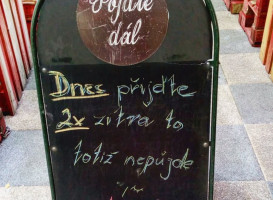 Pojďte
dál
Dnes přijďte
2x zítra to
totiž nepůjde